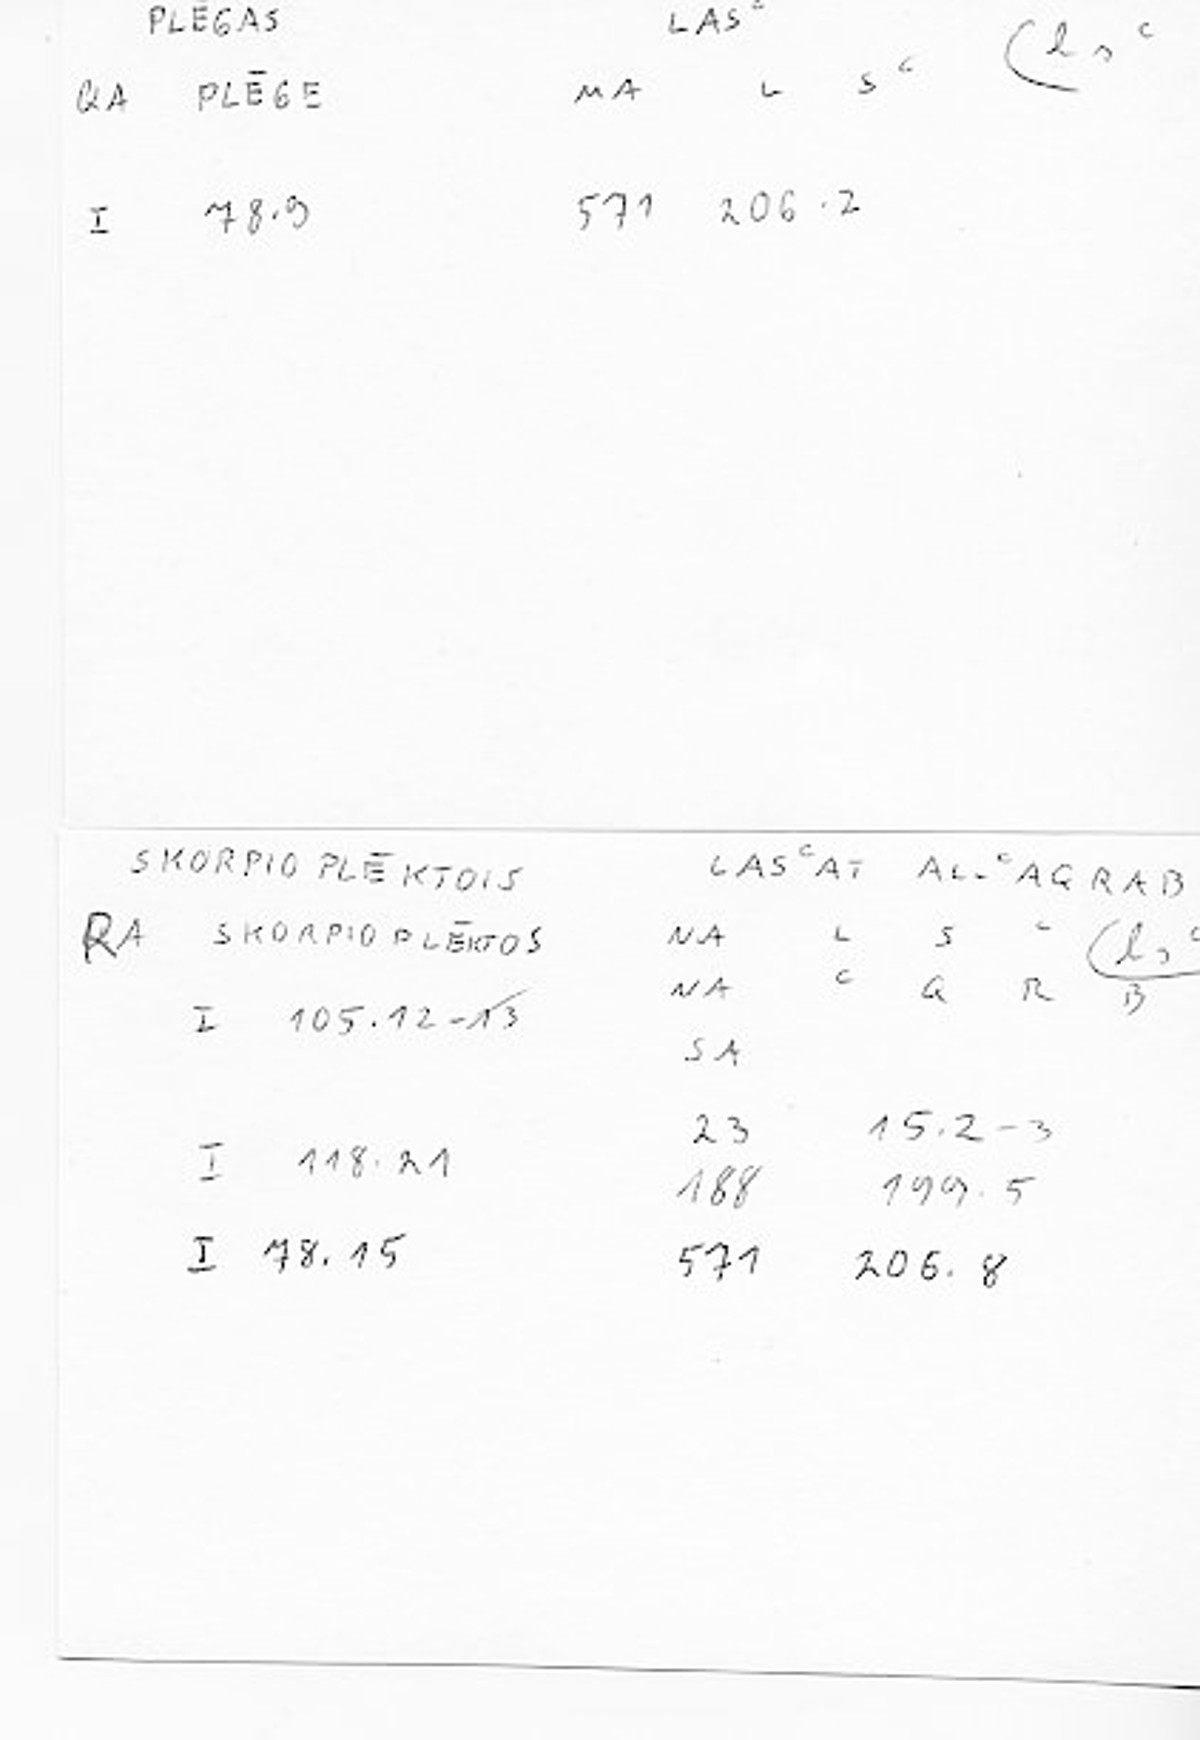 PLĒGAS LASᶜ
(lsᶜ
QA PLĒGE MA L Sᶜ
I 78.9 571 206.2
SKORPIOPLĒKTOIS LASᶜAT AL-ᶜAQRAB
QA SKORPIOPLĒKTOS NA L S ᶜ (lsᶜ
NA ᶜ Q R B
I 105.12-13
SA
23 15.2-3
I 118.21
188 199.5
I 78.15 571 206.8